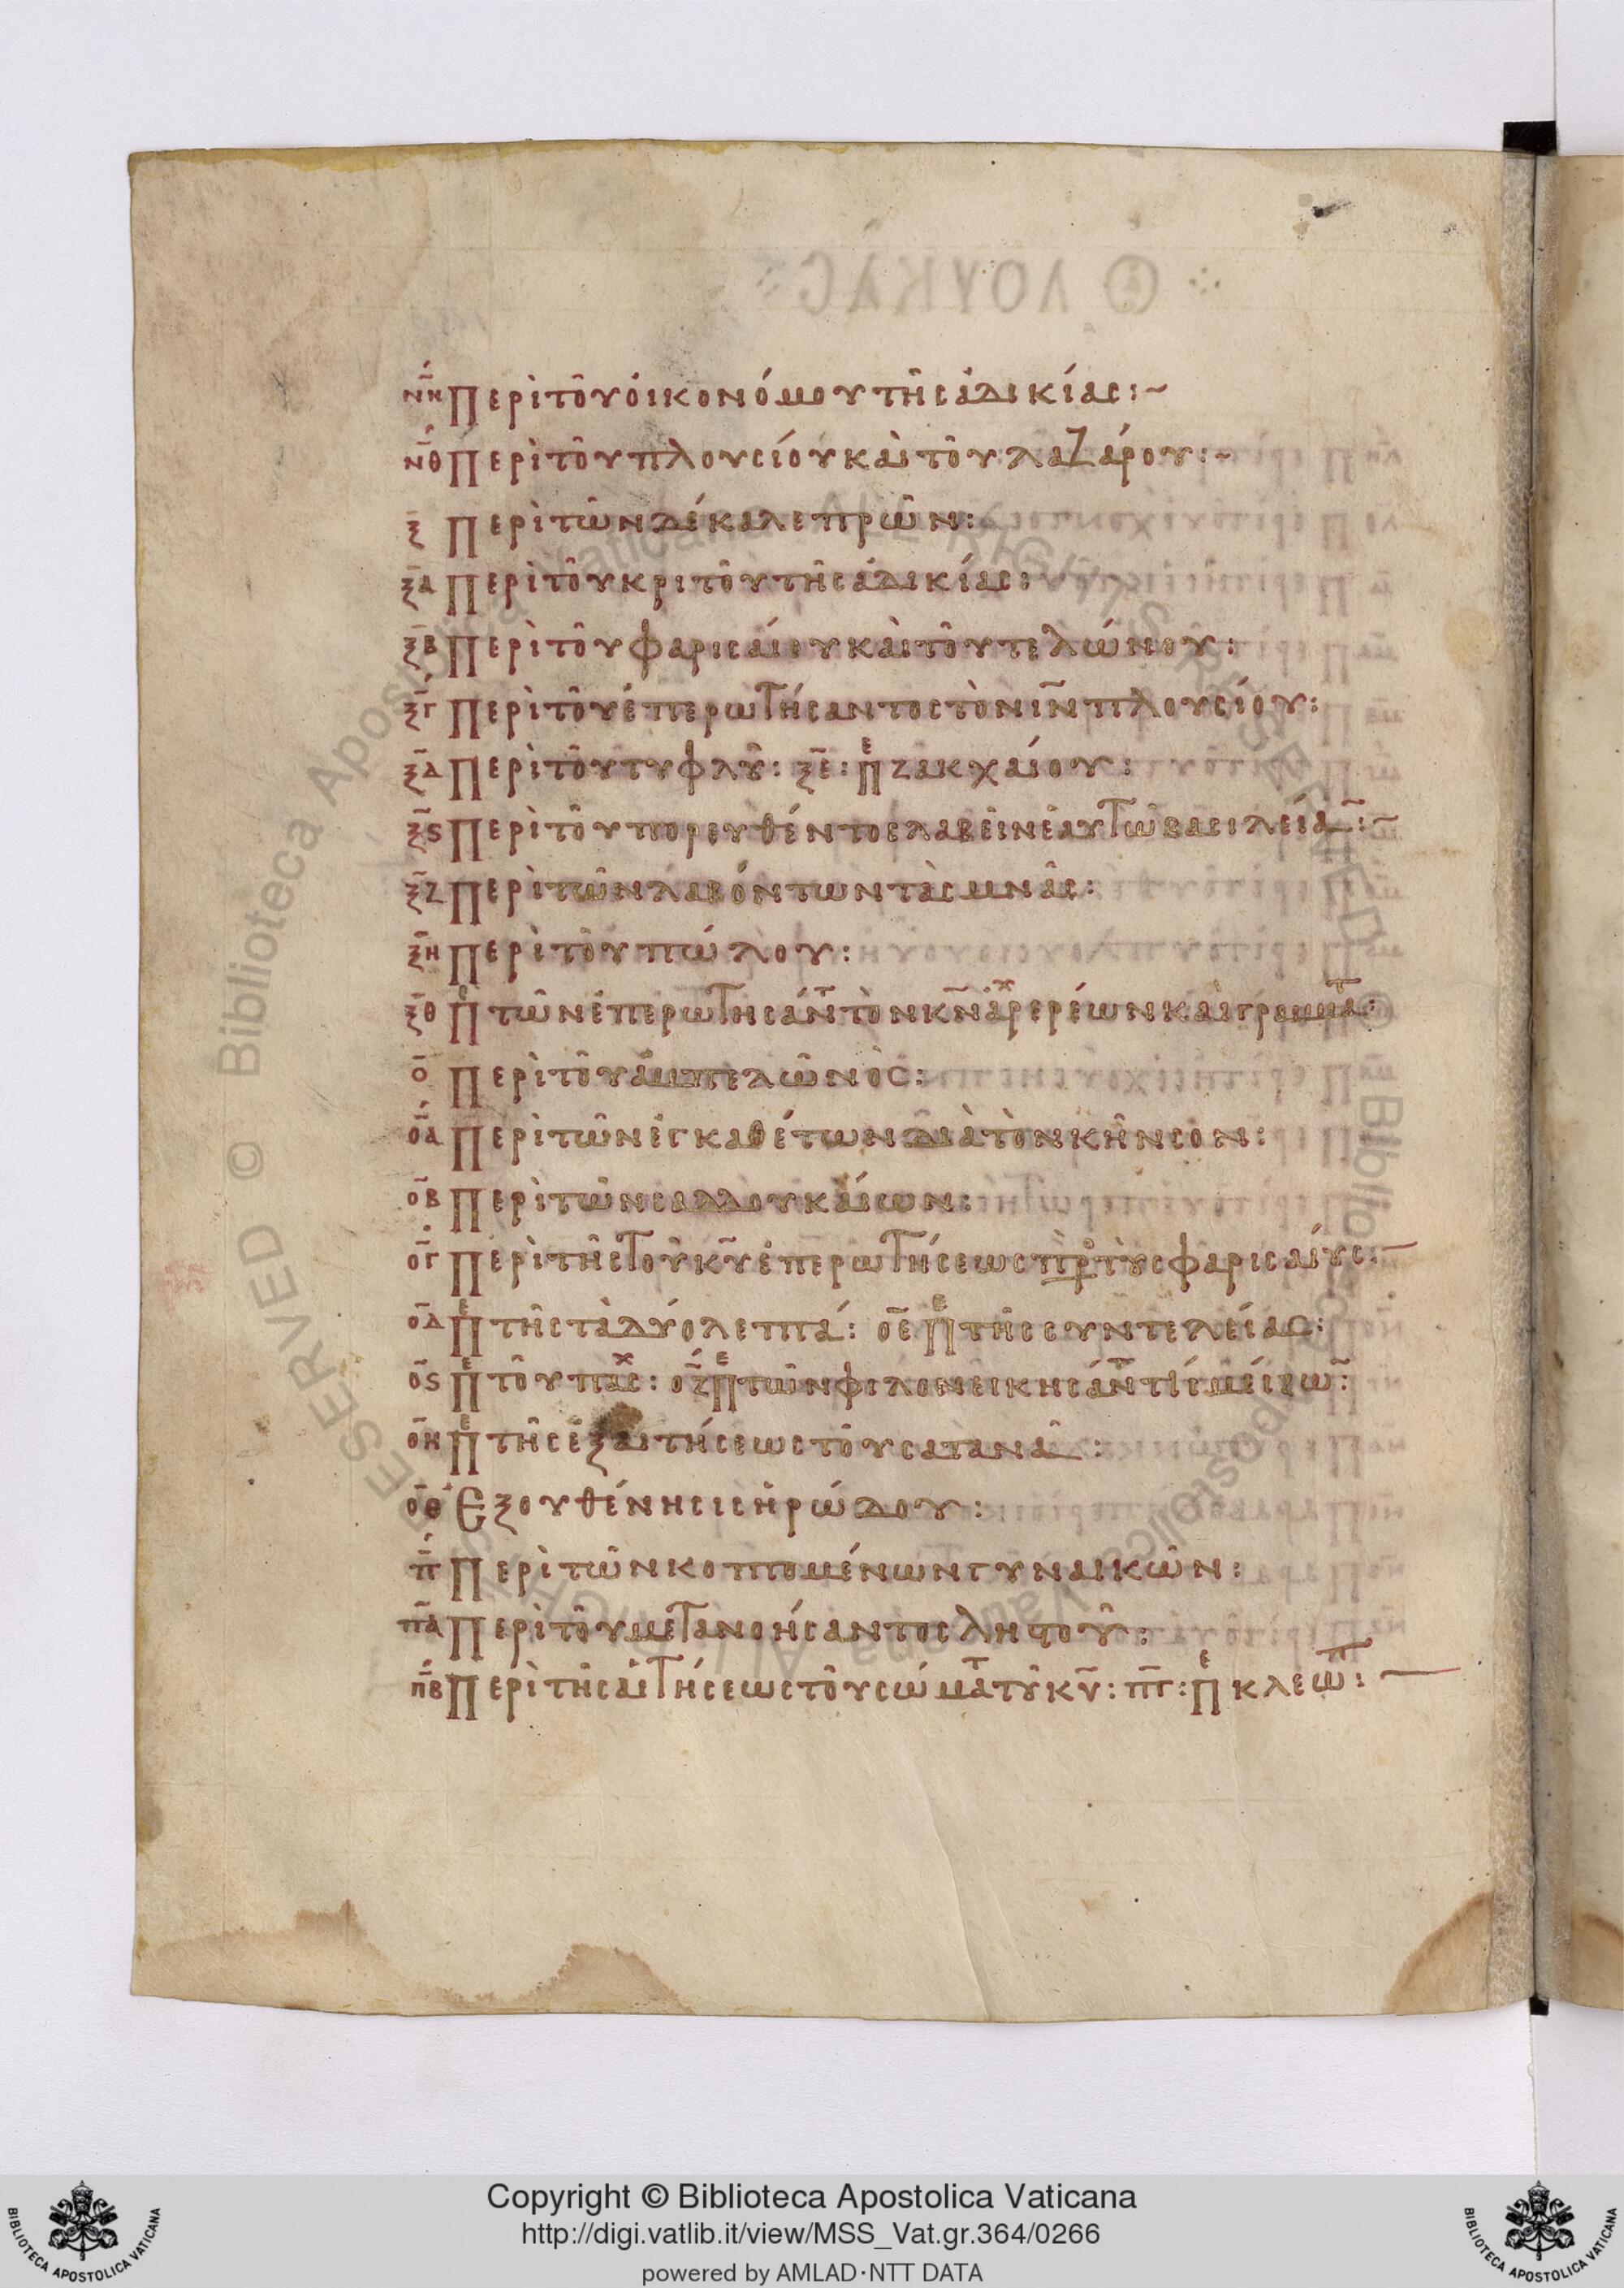 νη Περὶ τοῦ οἰκονόμου τῆς ἀδικίας:~
νθ Περὶ τοῦ πλουσίου καὶ τοῦ λαζάρου:~
ξ Περὶ τῶν δέκα λεπρῶν:
ξα Περὶ τοῦ κριτοῦ τῆς ἀδικίας:
ξβ Περὶ τοῦ φαρισαίου καὶ τοῦ τελώνου:
ξγ Περὶ τοῦ ἐπερωτήσαντος τὸν ι̅ν̅ πλουσίου:
ξδ Περὶ τοῦ τυφλοῦ: ξε: πε ζακχαίου:
ξϛ Περὶ τοῦ πορευθέντος λαβεῖν ἑαυτῶ βασιλεία̅:~
ξζ Περὶ τῶν λαβόντων τὰς μνᾶς:
ξη Περὶ τοῦ πώλου:
ξθ Πε τῶν ἐπερωτησάντ τὸν κ̅ν̅ ἀρχερέων καὶ γραμματ:
ο Περὶ τοῦ ἀμπελῶνος:
οα Περὶ τῶν ἐγκαθέτων διὰ τὸν κῆνσον:
οβ Περὶ τῶν σαδδουκαίων:
ογ Περὶ τῆς τοῦ κ̅υ̅ ἐπερωτήσεως πρ τοὺς φαρισαίους:~
οδ Πε τῆς τὰ δύο λεπτά: οε Πε τῆς συντελείας:
οϛ Πε τοῦ πασχ: οζ Πε τῶν φιλονεικησάντ τίς μείζω̅:
οη Πε τῆς ἐξαιτήσεως τοῦ σατανᾶ:
οθ Ἐξουθένησις ἡρώδου:
π Περὶ τῶν κοπτομένων γυναικῶν:
πα Περὶ τοῦ μετανοήσαντος ληστοῦ:
πβ Περὶ τῆς αἰτήσεως τοῦ σώματ τοῦ κ̅υ̅: πγ: πε κλεωπ:
Copyright © Biblioteca Apostolica Vaticana
http://digi.vatlib.it/view/MSS_Vat.gr.364/0266
powered by AMLAD·NTT DATA